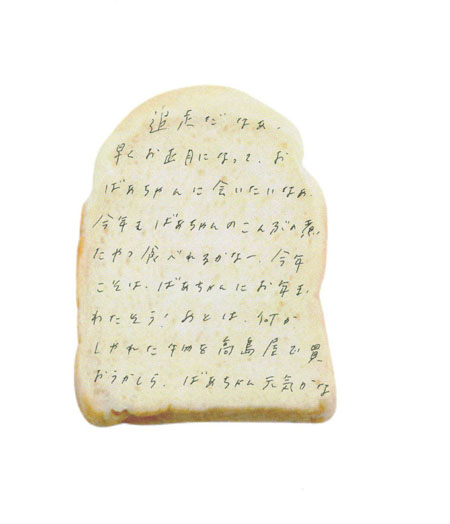 追走だなぁ、
早くお正月になって、お
ばあちゃんに会いたいなぁ
今年もばあちゃんのこんぶの煮
たやつ食べれるかなー、今年
こそは、ばあちゃんにお年玉
わたそう!あとは、何か
しゃれた物を高島屋で買
おうかしら。ばあちゃん元気かな